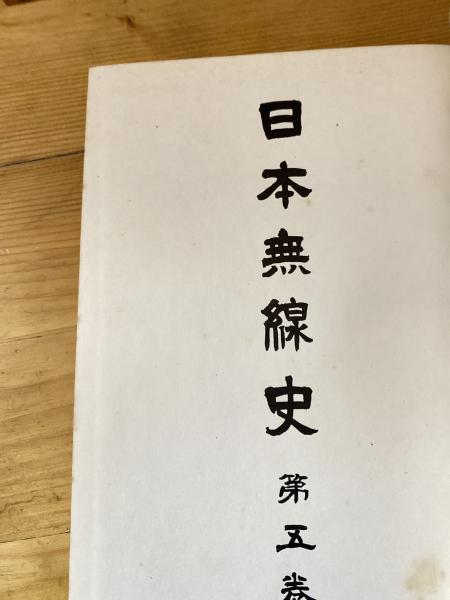 日本無線史
第五巻